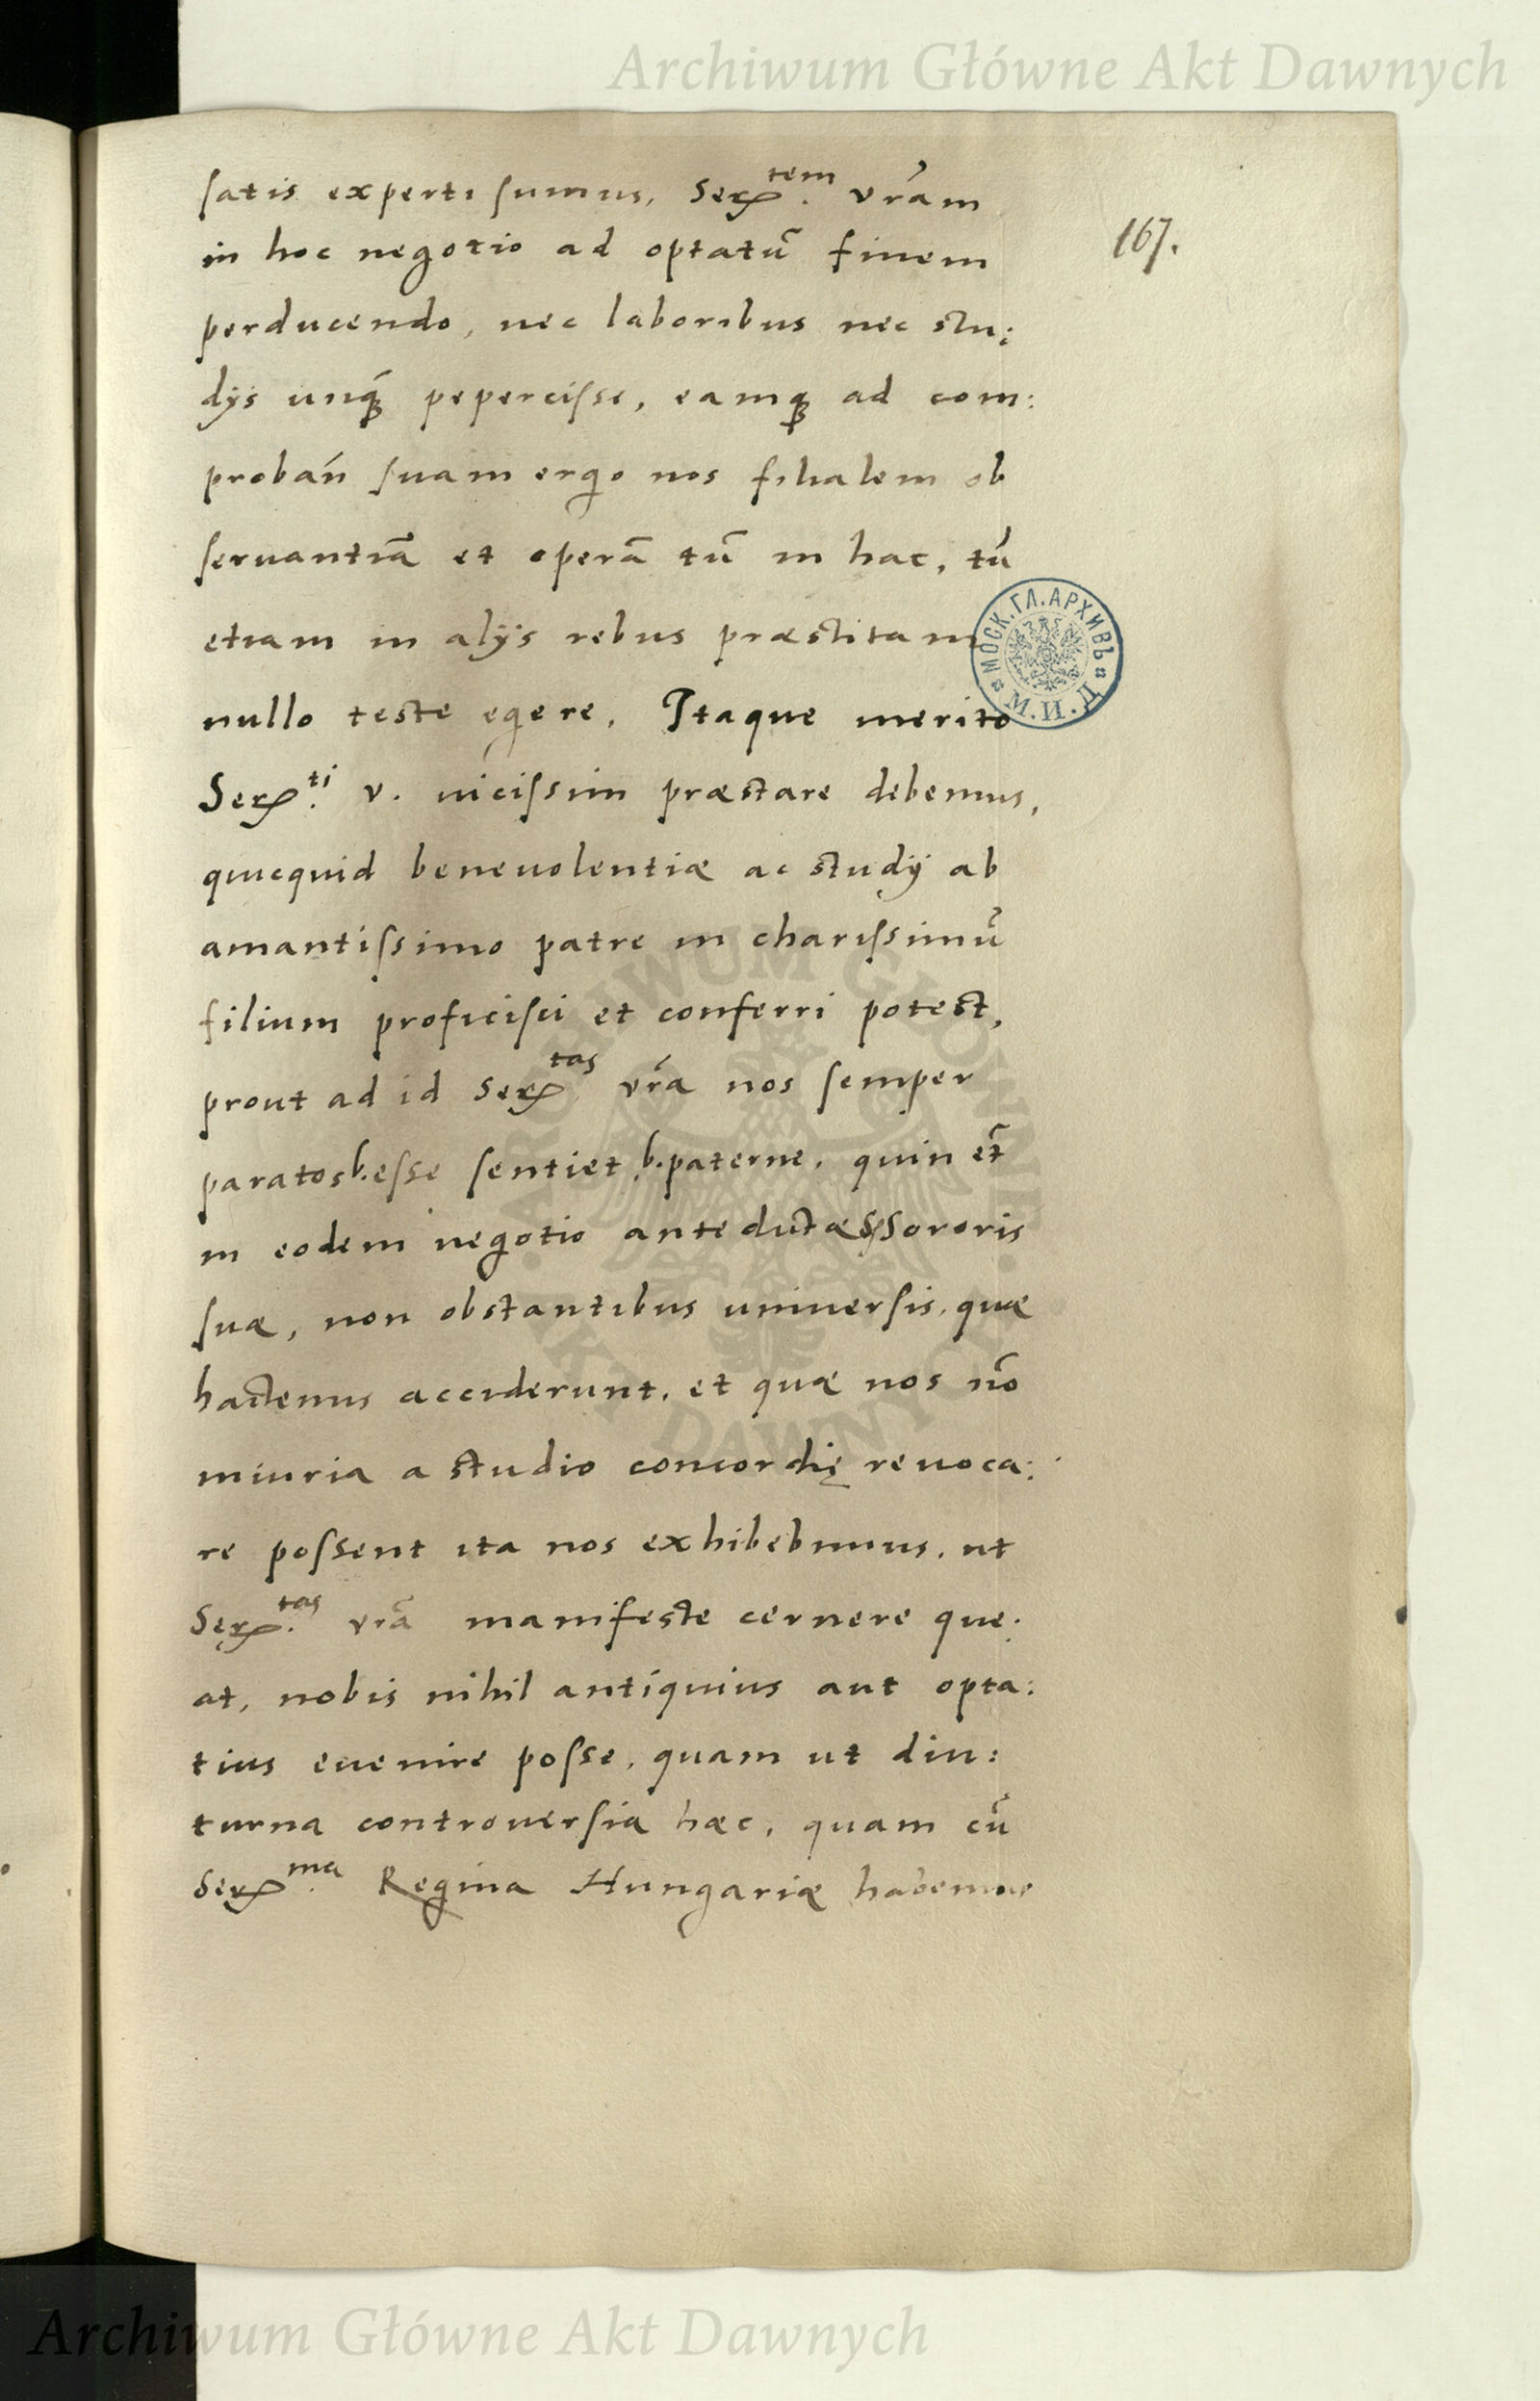 Archiwum Główne Akt Dawnych
satis experti sumus, Ser.tem vr̃am
167.
in hoc negotio ad optatũ finem
perducendo, nec laboribus nec stu:
dijs unq̃ pepercisse, eamq̃ ad com:
probañ suam ergo nos filialem ob
seruantiã et operã tũ in hac, tũ
etiam in alijs rebus præstitam
МОСК.ГЛ.АРХИВЪ М.И.Д.
nullo teste egere, Itaque merito
Ser.ti v. uicissim præstare debemus,
quicquid beneuolentiæ ac studij ab
amantissimo patre in charissimũ
filium proficisci et conferri potest,
prout ad id Ser.tas vr̃a nos semper
paratos b. esse sentiet, b. paterne, quin et̃
in eodem negotio ante dictæ S. Sororis
suæ, non obstantibus uniuersis, quæ
hactenus acciderunt, et quæ nos nõ
iniuria a studio concordię reuoca:
re possent ita nos exhibebimus, ut
Ser.tas vr̃a manifeste cernere que:
at, nobis nihil antiquius aut opta:
tius euenire posse, quam ut diu:
turna controuersia hæc, quam cũ
Ser.ma Regina Hungariæ habemus
ARCHIWUM GŁÓWNE AKT DAWNYCH
Archiwum Główne Akt Dawnych